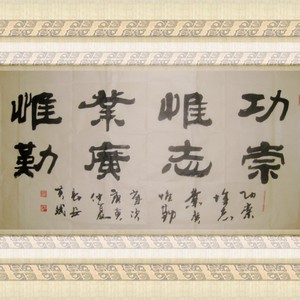 功崇
惟志
業廣
惟勤
功崇
惟志
業廣
惟勤
庚寅
仲夏